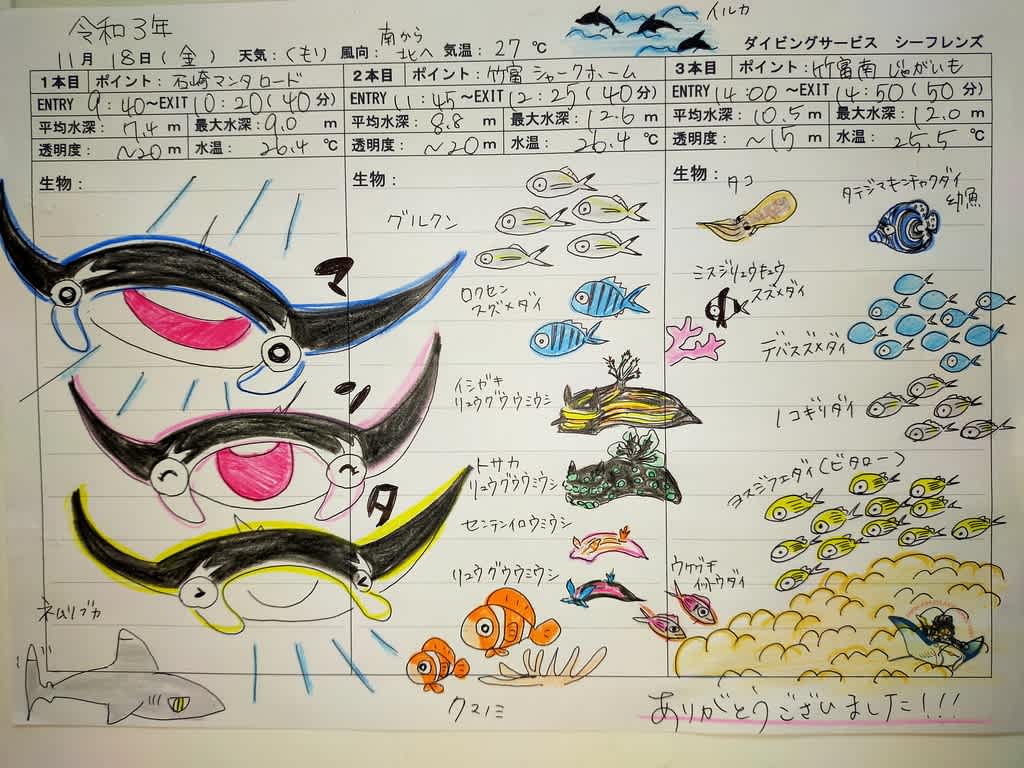 令和3年
イルカ
11月 18日(金) 天気:くもり 風向:南から北へ 気温:27℃
ダイビングサービス シーフレンズ
1本目 ポイント:石崎マンタロード
ENTRY 9:40~EXIT 10:20(40分)
平均水深:7.4m 最大水深:9.0m
透明度:~20m 水温:26.4℃
生物:
マンタ
ネムリブカ
2本目 ポイント:竹富シャークホーム
ENTRY 11:45~EXIT 12:25(40分)
平均水深:8.8m 最大水深:12.6m
透明度:~20m 水温:26.4℃
生物:
グルクン
ロクセン
スズメダイ
イシガキ
リュウグウウミウシ
トサカ
リュウグウウミウシ
センテンイロウミウシ
リュウグウウミウシ
クマノミ
3本目 ポイント:竹富南じゃがいも
ENTRY 14:00~EXIT 14:50(50分)
平均水深:10.5m 最大水深:12.0m
透明度:~15m 水温:25.5℃
生物:
タコ
タテジマキンチャクダイ
幼魚
ミスジリュウキュウ
スズメダイ
デバスズメダイ
ノコギリダイ
ヨスジフエダイ(ビタロー)
ウケグチ
イットウダイ
ありがとうございました!!!